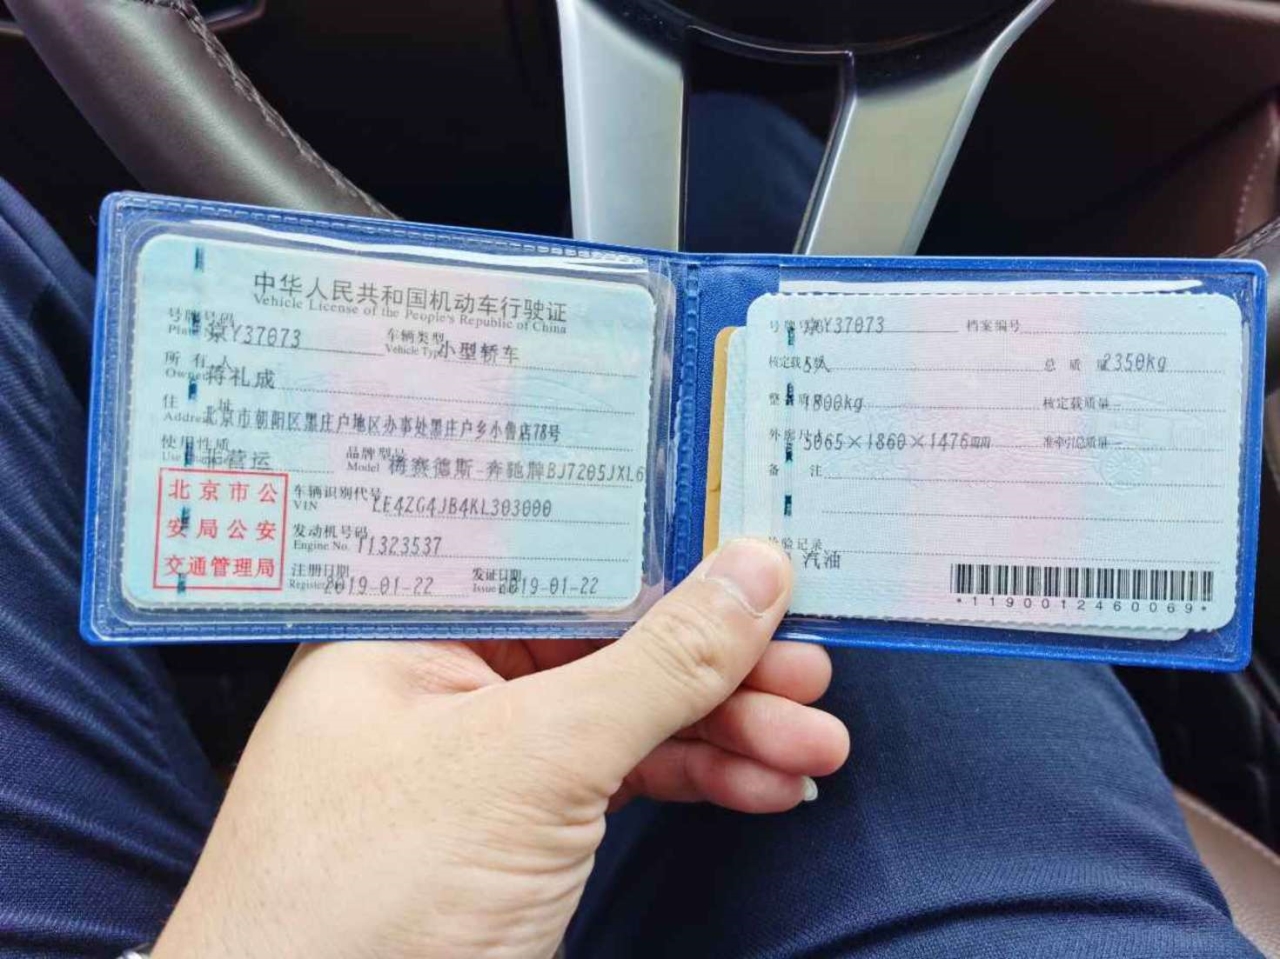 中华人民共和国机动车行驶证
Vehicle License of the People's Republic of China
号牌号码 京Y37073 车辆类型 小型轿车
Plate Vehicle Type
所有人 蒋礼成
Owner
住址 北京市朝阳区黑庄户地区办事处黑庄户乡小鲁店78号
Address
使用性质 非营运 品牌型号 梅赛德斯-奔驰牌BJ7205JXL6
Use Model
北京市公
安局公安
交通管理局
车辆识别代号 LE4ZG4JB4KL303000
VIN
发动机号码 11323537
Engine No.
注册日期 2019-01-22 发证日期 2019-01-22
Register Issue
号牌号码 京Y37073 档案编号
核定载人 5人 总质量 2350kg
整备质量 1800kg 核定载质量
外廓尺寸 5065×1860×1476mm 准牵引总质量
备注
检验记录
汽油
*1190012460069*